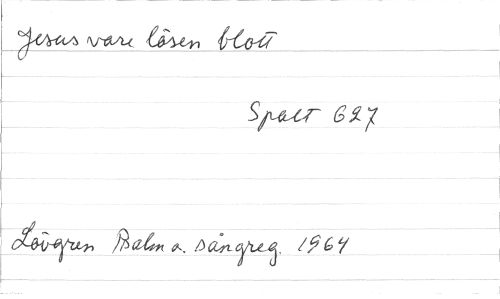 Jesus vare lösen blott
Spalt 627
Lövgren Psalm o. sångreg. 1964